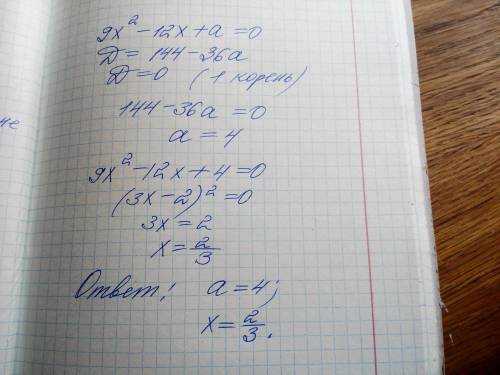 9x² - 12x + a = 0
D = 144 - 36a
D = 0 (1 корень)
144 - 36a = 0
a = 4
9x² - 12x + 4 = 0
(3x - 2)² = 0
3x = 2
x = 2/3
Ответ: a = 4;
x = 2/3.